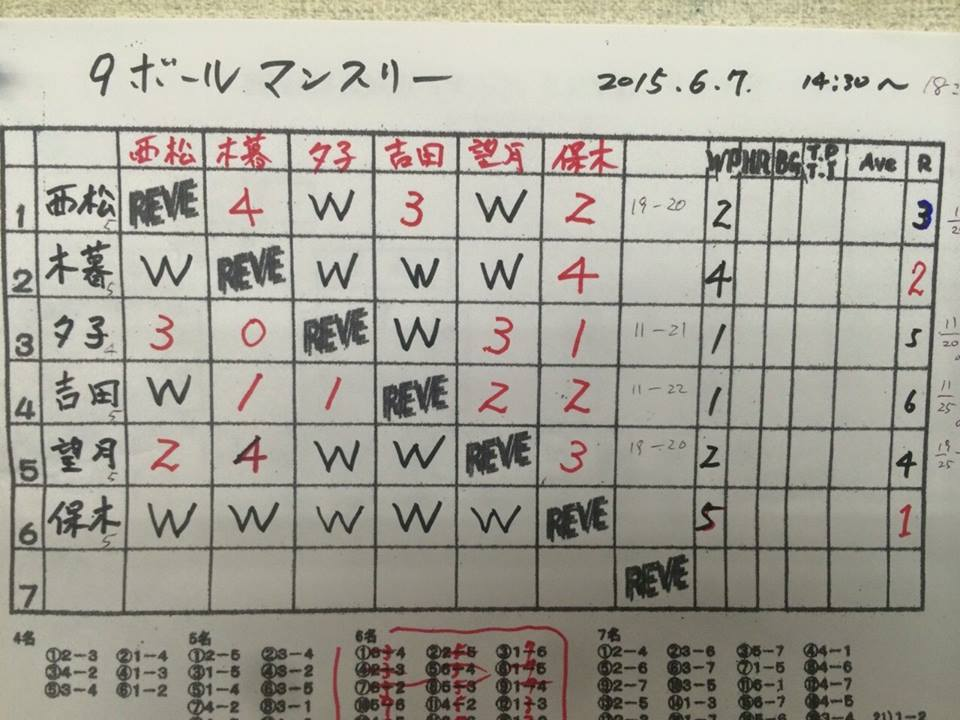 9ボールマンスリー 2015.6.7. 14:30～
西松 木暮 夕子 吉田 望月 保木 WP HR BG T.P T.I Ave R
1 西松 5 REVE 4 W 3 W 2 19-20 2 3
2 木暮 5 W REVE W W W 4 4 2
3 夕子 4 3 0 REVE W 3 1 11-21 1 5 11/20
4 吉田 5 W 1 1 REVE 2 2 11-22 1 6 11/25
5 望月 5 2 4 W W REVE 3 19-20 2 4 19/25
6 保木 5 W W W W W REVE 5 1
7 REVE
4名 5名 6名 7名
①2-3 ②1-4 ①2-5 ②3-4 ①2-4 ②3-6 ③5-7 ④4-1
③4-2 ④1-3 ③1-5 ④3-2 ⑤2-6 ⑥3-7 ⑦1-5 ⑧4-6
⑤3-4 ⑥1-2 ⑤1-4 ⑥3-5 ⑨2-7 ⑩3-5 ⑪6-1 ⑫4-7
⑦4-2 ⑧3-1